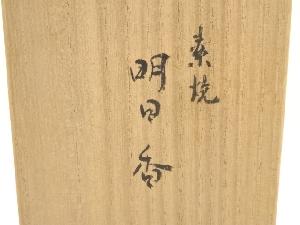 素焼
明日香